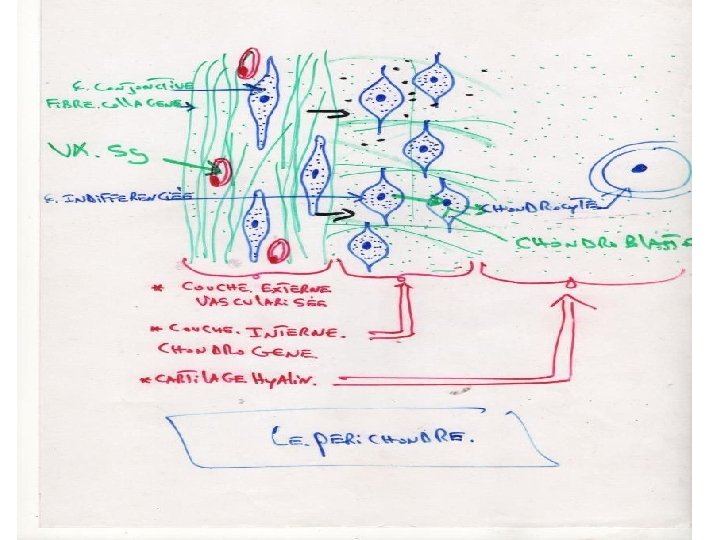 C. CONJONCTIVE
FIBRE. COLLAGENE
VX. Sg
C. INDIFFERENCIÉE
CHONDROCYTE
CHONDROBLASTE
* COUCHE. EXTERNE
VASCULARISÉE
* COUCHE. INTERNE.
CHONDROGENE.
* CARTILAGE HYALIN.
LE. PERICHONDRE.